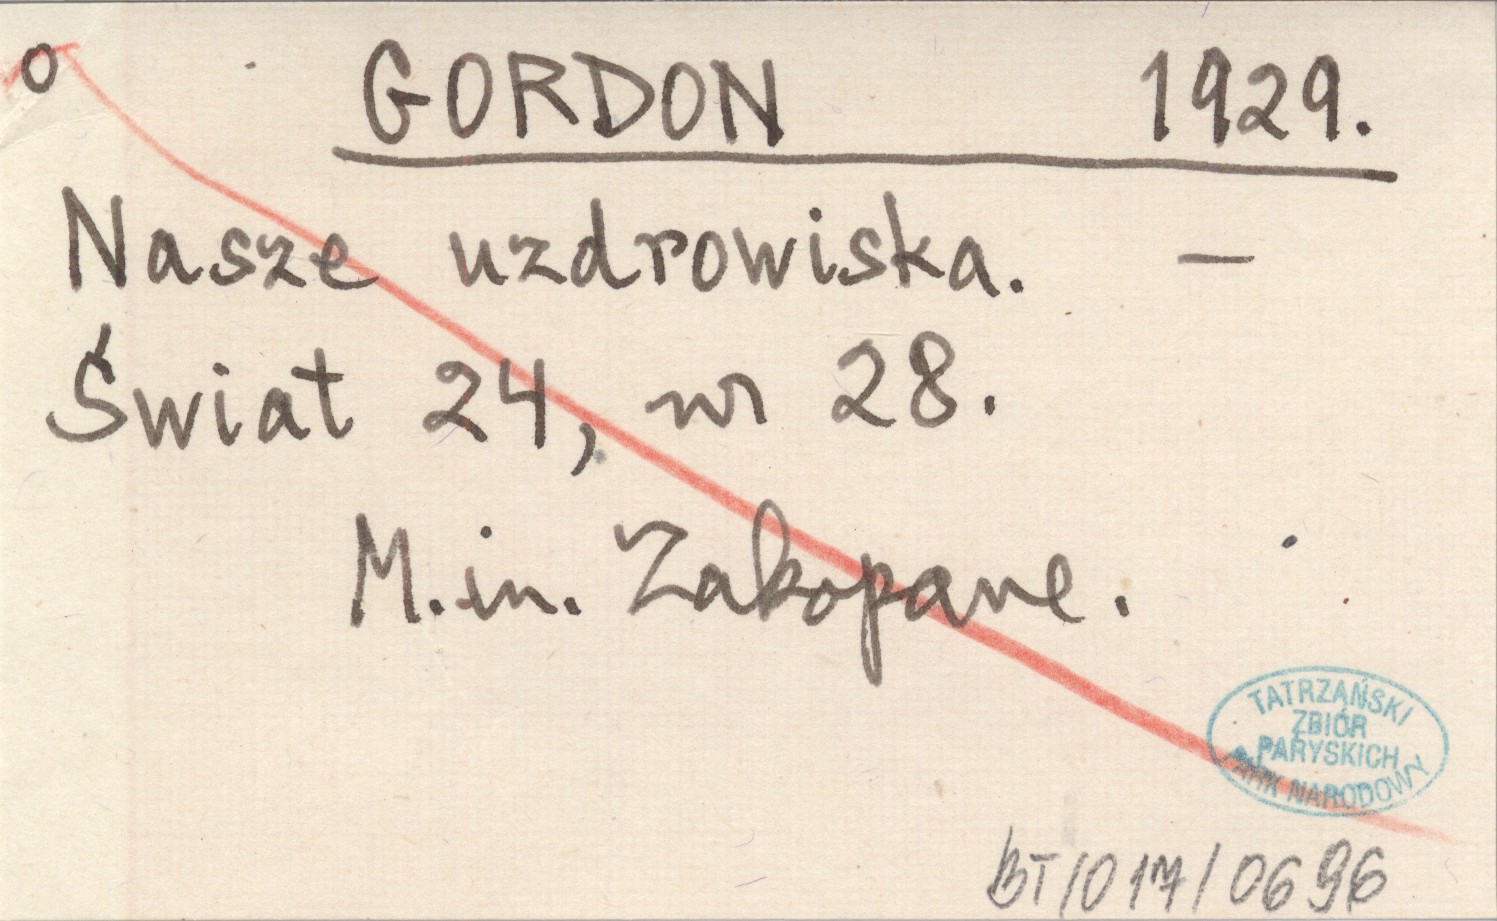 o GORDON 1929.
Nasze uzdrowiska. —
Świat 24, nr 28.
M.in. Zakopane.
TATRZAŃSKI
ZBIÓR
PARYSKICH
PARK NARODOWY
BT/017/0696